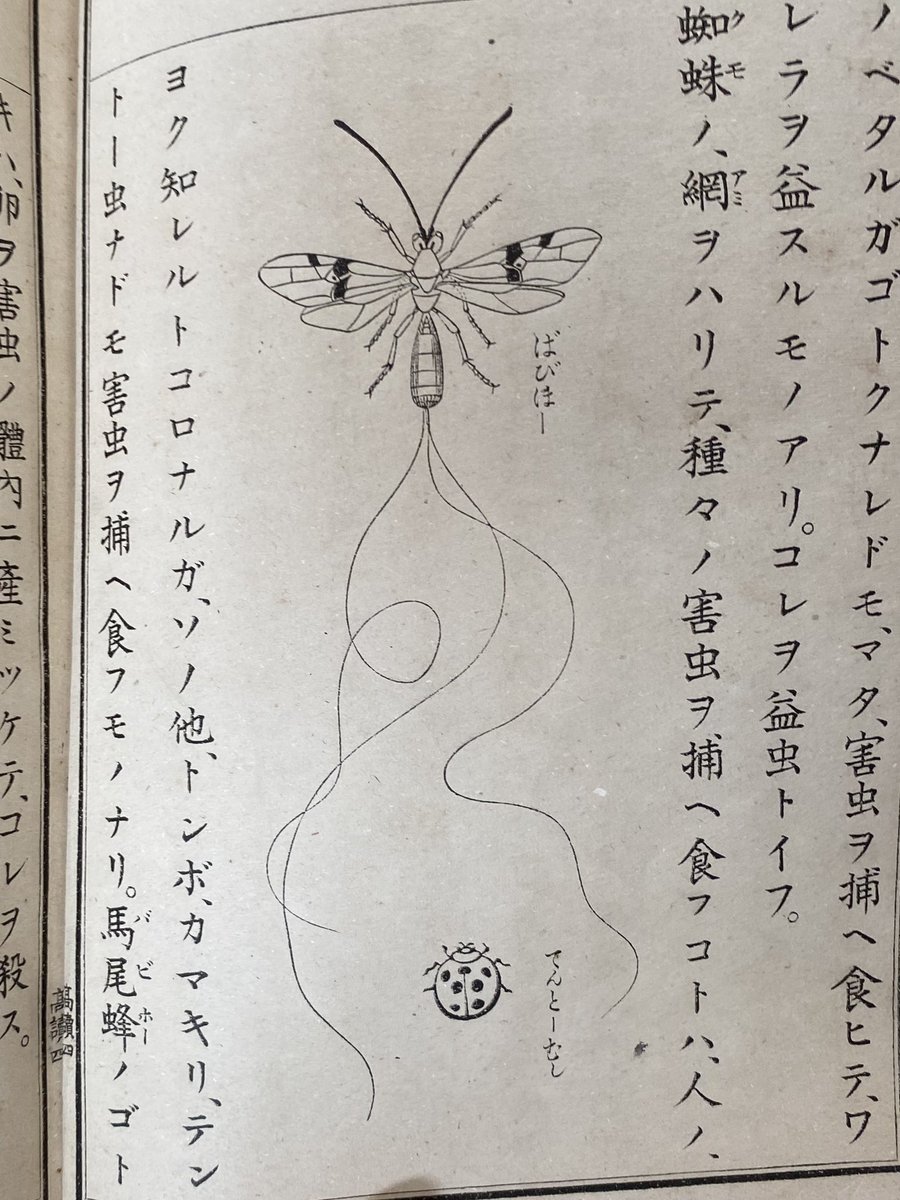 ノベタルガゴトクナレドモ、マタ、害虫ヲ捕ヘ食ヒテ、ワ
レラヲ益スルモノアリ。コレヲ益虫トイフ。
蜘蛛ノ、網ヲハリテ、種々ノ害虫ヲ捕ヘ食フコトハ、人ノ、
クモ
アミ
ばびほー
てんとーむし
ヨク知レルトコロナルガ、ソノ他、トンボ、カマキリ、テン
トー虫ナドモ害虫ヲ捕ヘ食フモノナリ。馬尾蜂ノゴト
バビホー
高讀四
キハ、卵ヲ害虫ノ體內ニ產ミツケテ、コレヲ殺ス。